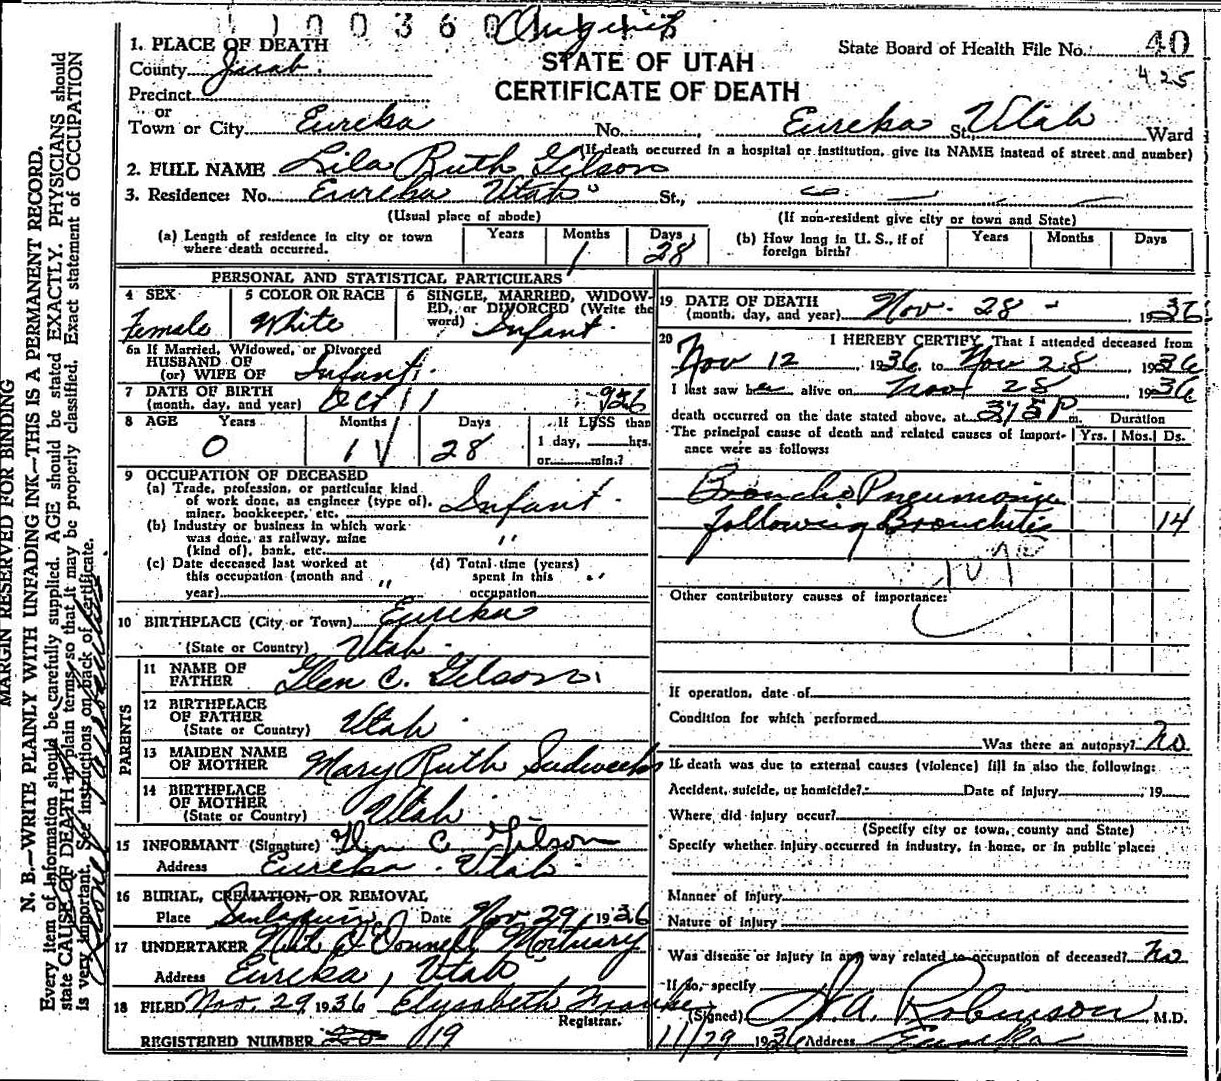 1 1 0 0 3 6 0
1. PLACE OF DEATH
County Juab
STATE OF UTAH
CERTIFICATE OF DEATH
State Board of Health File No. 40
425
Precinct
or
Town or City Eureka No. , Eureka St. Utah Ward
(If death occurred in a hospital or institution, give its NAME instead of street and number)
2. FULL NAME Lila Ruth Gilson
3. Residence: No. Eureka Utah St.,
(Usual place of abode) (If non-resident give city or town and State)
(a) Length of residence in city or town where death occurred. Years Months 1 Days 28
(b) How long in U. S., if of foreign birth? Years Months Days
PERSONAL AND STATISTICAL PARTICULARS
4 SEX Female
5 COLOR OR RACE White
6 SINGLE, MARRIED, WIDOWED, or DIVORCED (Write the word) Infant
6a If Married, Widowed, or Divorced
HUSBAND OF
(or) WIFE OF Infant
7 DATE OF BIRTH
(month, day, and year) Oct 1
8 AGE Years 0 Months 1 Days 28 If LESS than
1 day, hrs.
or min.?
9 OCCUPATION OF DECEASED
(a) Trade, profession, or particular kind
of work done, as engineer (type of),
miner, bookkeeper, etc. Infant
(b) Industry or business in which work
was done, as railway, mine
(kind of), bank, etc. "
(c) Date deceased last worked at
this occupation (month and
year) "
(d) Total time (years)
spent in this
occupation "
10 BIRTHPLACE (City or Town) Eureka
(State or Country) Utah
PARENTS
11 NAME OF
FATHER Glen C. Gilson
12 BIRTHPLACE
OF FATHER
(State or Country) Utah
13 MAIDEN NAME
OF MOTHER Mary Ruth Sudweeks
14 BIRTHPLACE
OF MOTHER
(State or Country) Utah
15 INFORMANT (Signature) Glen C. Gilson
Address Eureka Utah
16 BURIAL, CREMATION, OR REMOVAL
Place Date Nov 29, 1936
17 UNDERTAKER O'Donnell Mortuary
Address Eureka, Utah
18 FILED Nov. 29, 1936 Elysabeth
Registrar.
REGISTERED NUMBER 20 19
19 DATE OF DEATH
(month, day, and year) Nov. 28 - 1936
20 I HEREBY CERTIFY, That I attended deceased from
Nov 12 1936, to Nov 28 1936
I last saw h alive on Nov 28 1936
death occurred on the date stated above, at 315 P m. Duration
The principal cause of death and related causes of importance were as follows: Yrs. Mos. Ds.
Broncho Pneumonia
following Bronchitis 14
107
Other contributory causes of importance:
If operation, date of
Condition for which performed
Was there an autopsy? no
If death was due to external causes (violence) fill in also the following:
Accident, suicide, or homicide? Date of injury , 19
Where did injury occur?
(Specify city or town, county and State)
Specify whether injury occurred in industry, in home, or in public place:
Manner of Injury
Nature of Injury
Was disease or injury in any way related to occupation of deceased? no
If so, specify
(Signed) Robinson M.D.
11/29 1936 Address Eureka
MARGIN RESERVED FOR BINDING
N. B.—WRITE PLAINLY WITH UNFADING INK—THIS IS A PERMANENT RECORD.
Every item of information should be carefully supplied. AGE should be stated EXACTLY. PHYSICIANS should
state CAUSE OF DEATH in plain terms, so that it may be properly classified. Exact statement of OCCUPATION
is very important. See instructions on back of certificate.